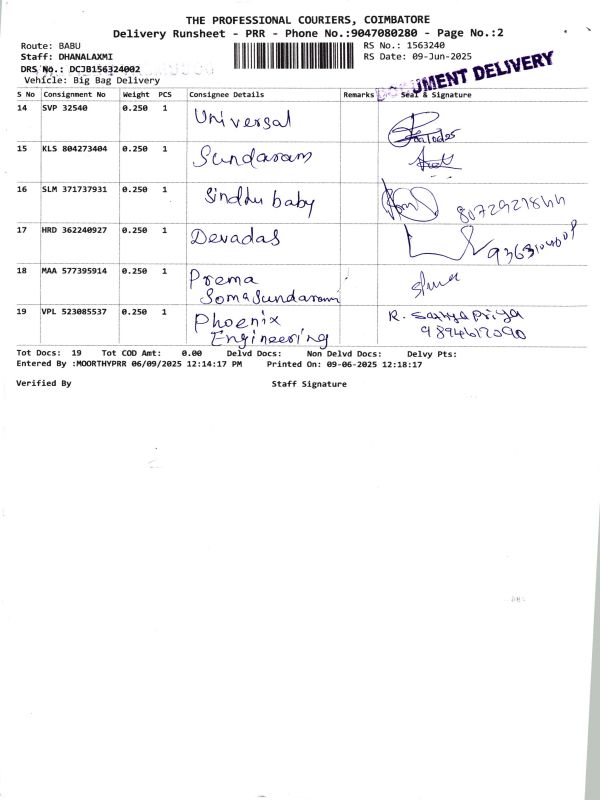 THE PROFESSIONAL COURIERS, COIMBATORE
Delivery Runsheet - PRR - Phone No.:9047080280 - Page No.:2
Route: BABU
Staff: DHANALAXMI
DRS No.: DCJB156324002
Vehicle: Big Bag Delivery
RS No.: 1563240
RS Date: 09-Jun-2025
DOCUMENT DELIVERY
S No Consignment No Weight PCS Consignee Details Remarks Seal & Signature
14 SVP 32540 0.250 1 Universal
15 KLS 804273404 0.250 1 Sundaram
16 SLM 371737931 0.250 1 Sindhu baby
17 HRD 362240927 0.250 1 Devadas
18 MAA 577395914 0.250 1 Prema
Somasundaram
19 VPL 523085537 0.250 1 Phoenix R. Sathya Priya
Engineering 9894612090
Tot Docs: 19 Tot COD Amt: 0.00 Delvd Docs: Non Delvd Docs: Delvy Pts:
Entered By :MOORTHYPRR 06/09/2025 12:14:17 PM Printed On: 09-06-2025 12:18:17
Verified By Staff Signature